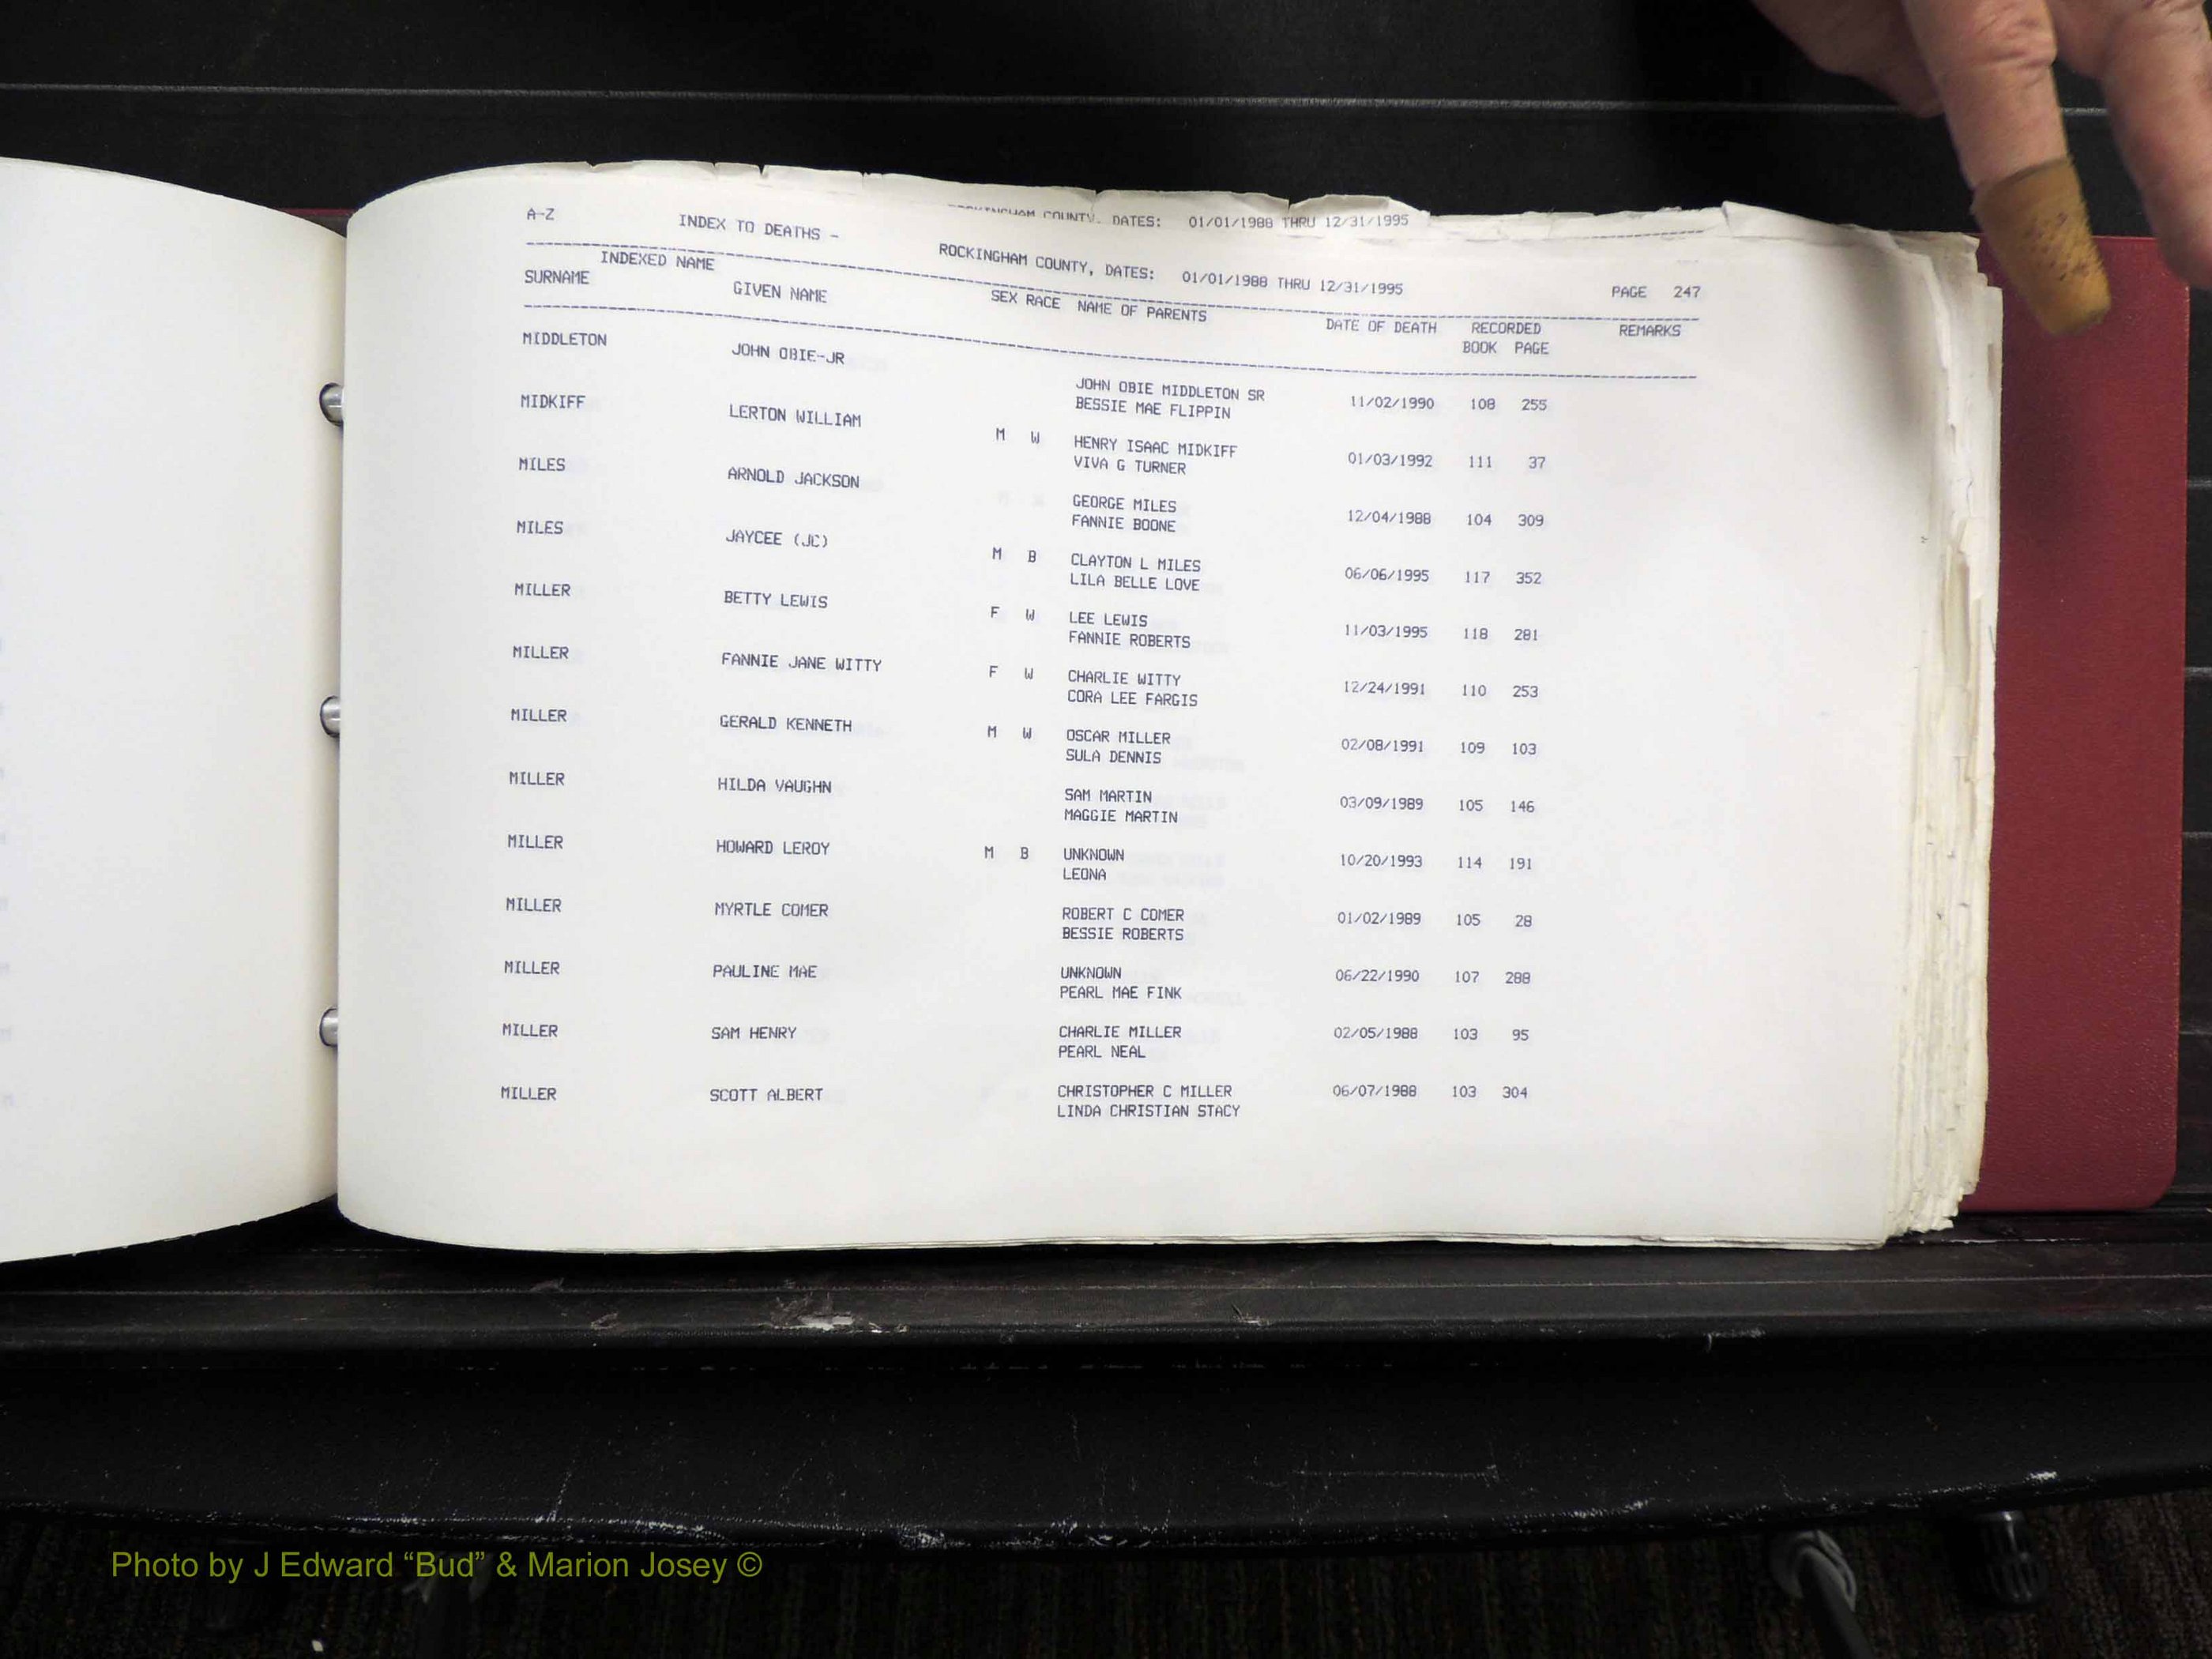 COUNTY. DATES: 01/01/1988 THRU 12/31/1995
A-Z INDEX TO DEATHS - ROCKINGHAM COUNTY, DATES: 01/01/1988 THRU 12/31/1995 PAGE 247
INDEXED NAME
SURNAME GIVEN NAME SEX RACE NAME OF PARENTS DATE OF DEATH RECORDED REMARKS
BOOK PAGE
MIDDLETON JOHN OBIE-JR JOHN OBIE MIDDLETON SR 11/02/1990 108 255
BESSIE MAE FLIPPIN
MIDKIFF LERTON WILLIAM M W HENRY ISAAC MIDKIFF 01/03/1992 111 37
VIVA G TURNER
MILES ARNOLD JACKSON GEORGE MILES 12/04/1988 104 309
FANNIE BOONE
MILES JAYCEE (JC) M B CLAYTON L MILES 06/06/1995 117 352
LILA BELLE LOVE
MILLER BETTY LEWIS F W LEE LEWIS 11/03/1995 118 281
FANNIE ROBERTS
MILLER FANNIE JANE WITTY F W CHARLIE WITTY 12/24/1991 110 253
CORA LEE FARGIS
MILLER GERALD KENNETH M W OSCAR MILLER 02/08/1991 109 103
SULA DENNIS
MILLER HILDA VAUGHN SAM MARTIN 03/09/1989 105 146
MAGGIE MARTIN
MILLER HOWARD LEROY M B UNKNOWN 10/20/1993 114 191
LEONA
MILLER MYRTLE COMER ROBERT C COMER 01/02/1989 105 28
BESSIE ROBERTS
MILLER PAULINE MAE UNKNOWN 06/22/1990 107 288
PEARL MAE FINK
MILLER SAM HENRY CHARLIE MILLER 02/05/1988 103 95
PEARL NEAL
MILLER SCOTT ALBERT CHRISTOPHER C MILLER 06/07/1988 103 304
LINDA CHRISTIAN STACY
Photo by J Edward “Bud” & Marion Josey ©